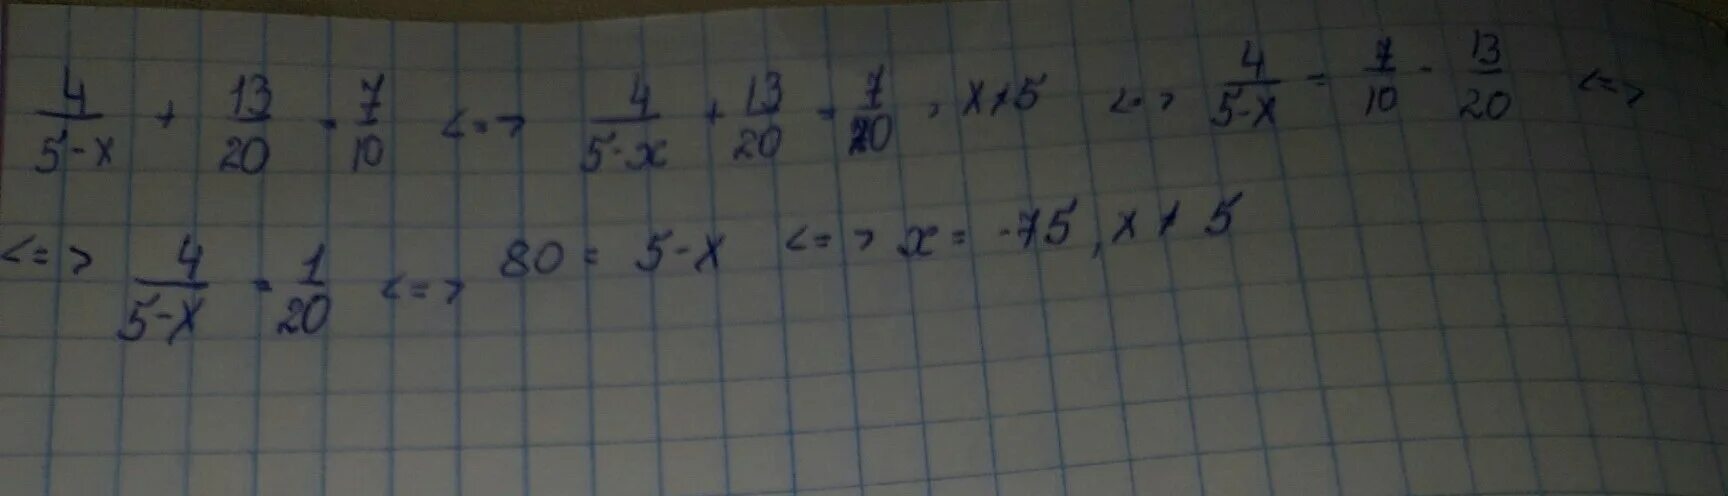 4/(5-x) + 13/20 = 7/10 <=> 4/(5-x) + 13/20 = 7/20, x ≠ 5 <=> 4/(5-x) = 7/10 - 13/20 <=>
<=> 4/(5-x) = 1/20 <=> 80 = 5-x <=> x = -75, x ≠ 5